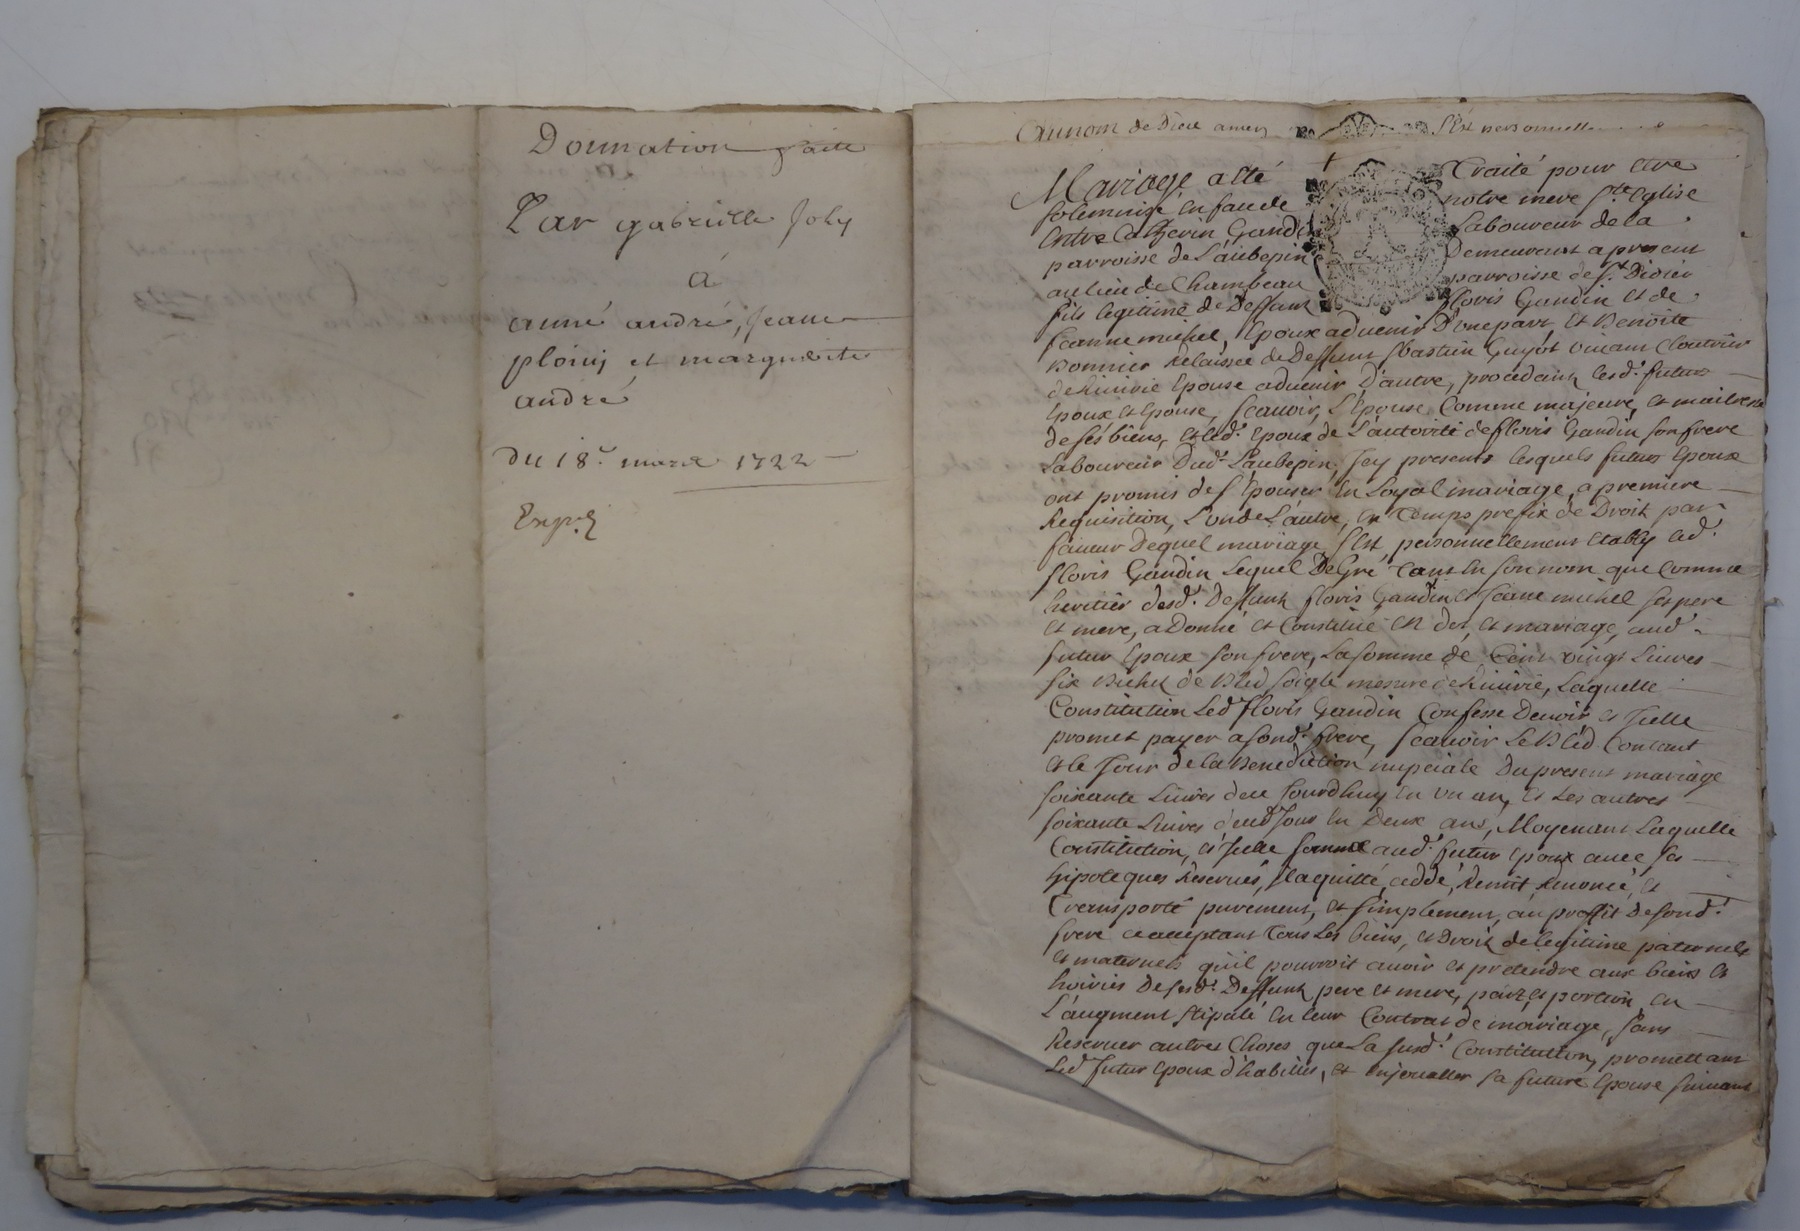 Donnation faite
Par gabrielle Joly
à
anné andré, Jeanne
ploivy et margueritte
andré
du 18e mars 1722
Exp.é
Au nom de Dieu amen S'Est personnelle
Mariage a été Traité pour Etre
solemnisé En face de notre mere Ste Eglise
Entre Catherin Gandin Laboureur de la
parroisse de L'aubepin Demeurant a present
au lieu de Chambeau parroisse de St Didier
fils legitime de Deffunt floris Gandin et de
Jeanne michel, Epoux aduenir D'une part, Et Benoite
Bonnier Relaissée de Deffunt Sbastien Guyot viuant Cloutrier
de Riuirie Epouse aduenir D'autre, procedant lesd. futurs
Epoux et Epouse, scauoir, L'Epouse Comme majeure, et maitresse
de ses biens, et led. Epoux de L'autorité de floris Gandin son frere
Laboureur Dud. L'aubepin, Jcy present lesquels futurs Epoux
ont promis de s'Epouser En Loyal mariage, a premiere
Requisition, L'un de L'autre, en Temps prefix de Droit par
faueur Dequel mariage s'Est, personnellement Etably led.
floris Gandin Lequel De Gré Tant En son nom que Comme
heritier desd. Deffunts floris Gandin et Jeanne michel ses pere
et mere, a Donné et Constitué En dot, et mariage, aud.
futur Epoux son frere, La somme de Cent vingt Liures
six Bichets de Bled soigle mesure de Riuirie, Laquelle
Constitution Led floris Gandin Confesse Deuoir et Jcelle
promet payer a sond. frere, scauoir Le Bléd Contant
et le Jour de la Benediction nupciale Du present mariage
soixante Liures de ce Jourdhuy En un an, et Les autres
soixante Liures deud Jour En Deux ans, Moyenant Laquelle
Constitution, et Jcelle somme aud. futur Epoux auec ses
hipoteques Reserués, Jl a quitté, cedde, Remit Renoncé, et
Transporté purement, et simplement, au proffit de sond.
frere ce acceptant Tous Les biens, et Droits de legitime paternels
et maternels qu'il pourroit auoir et pretendre aux biens et
hoiries De sesd. Deffunts pere et mere, part, et portion, en
L'augment stipulé En leur Contrat de mariage, sans
Reseruer autres Choses que La susd. Constitution, promettant
Led futur Epoux d'habiller, et enjoualler sa future Epouse suiuant